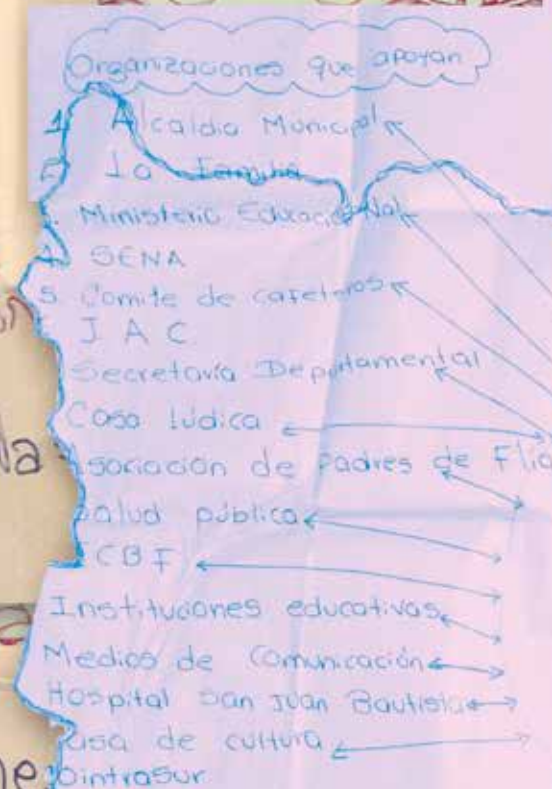 Organizaciones que apoyan
1. Alcaldia Municipal
2. La Familia
. Ministerio Educación Nal
4. SENA
5. Comite de cafeteros
J A C
Secretaría Departamental
Casa lúdica
Asociación de Padres de Flia
Salud pública
CBF
Instituciones educativas
Medios de Comunicación
Hospital San Juan Bautista
Casa de cultura
ointrasur